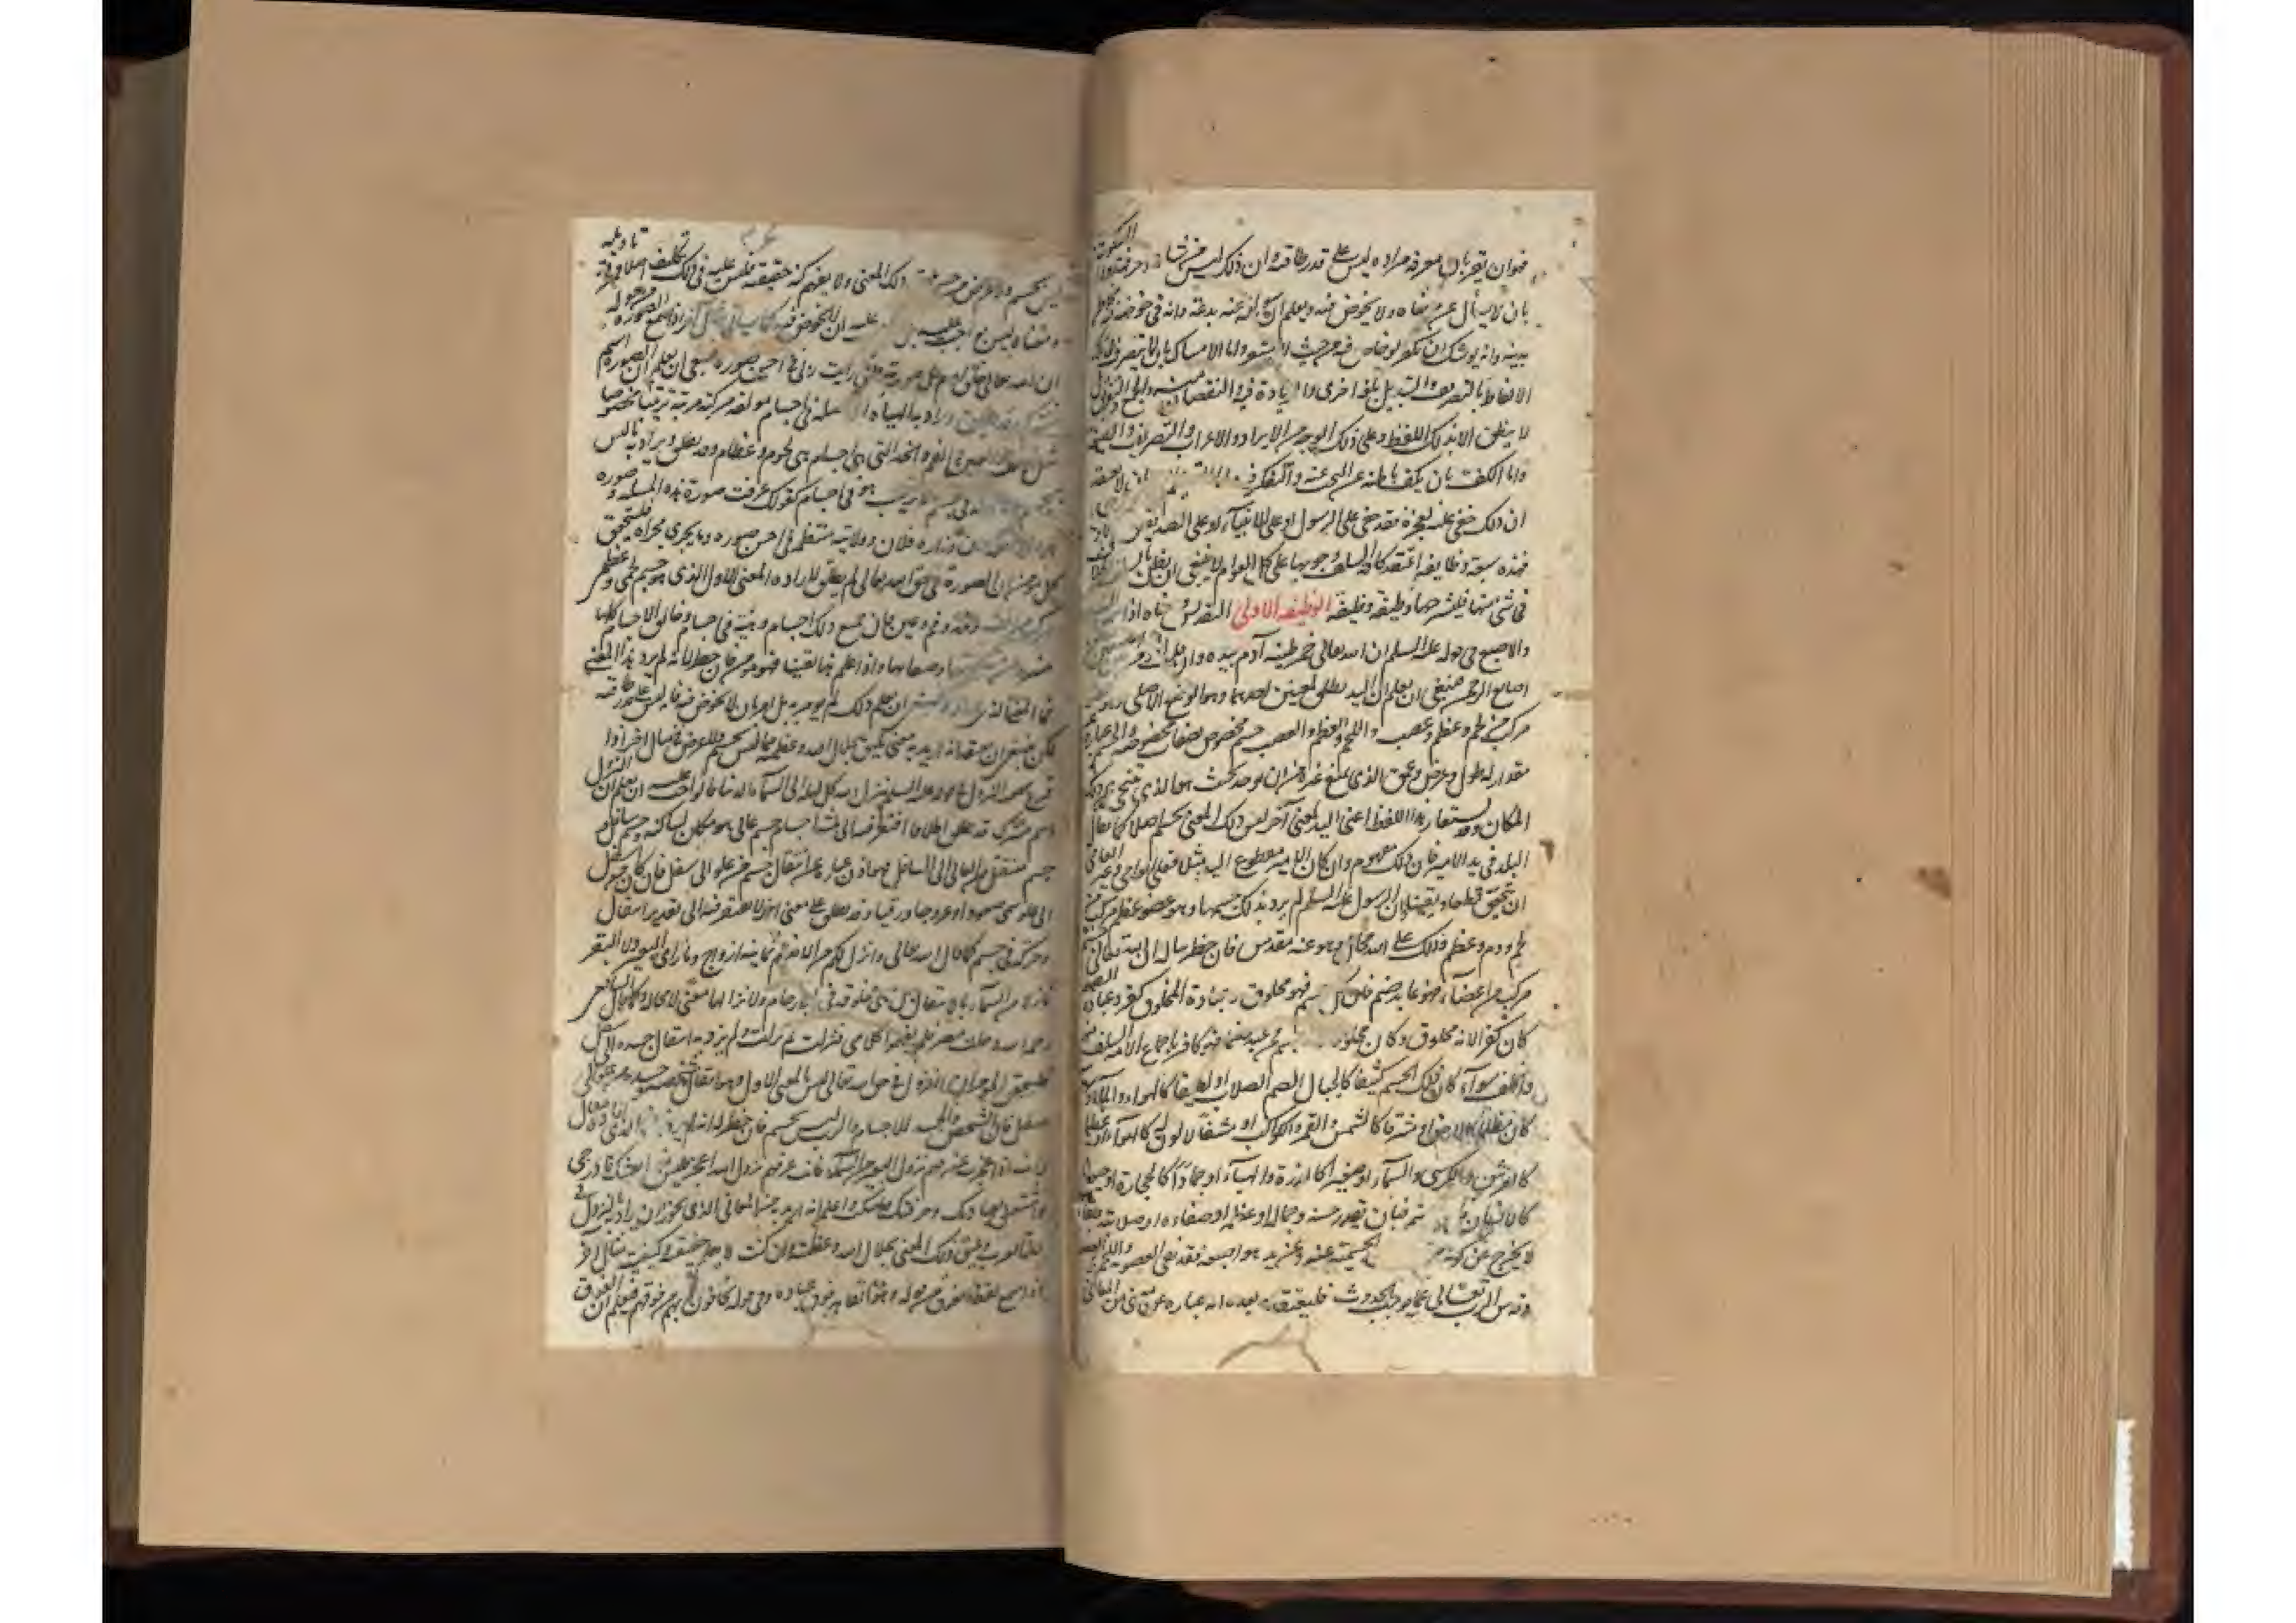 فهو ان يقر بان معرفة مراده ليس على قدر طاقته وان ذلك ليس من شانه وحرفته واما السكوت
بان لا يسأل عن معناه ولا يخوض فيه ويعلم ان سؤاله عنه بدعة وانه في خوضه فيه مخاطر
بدينه وانه يوشك ان يكفر لو خاض فيه من حيث لا يشعر واما الامساك بان لا يتصرف في تلك
الالفاظ بالتصريف والتبديل بلغة اخرى والزيادة فيه والنقصان منه والجمع والتفريق بل
لا ينطق الا بذلك اللفظ وعلى ذلك الوجه من الايراد والاعراب والتصريف والصيغة
واما الكف بان يكف باطنه عن البحث عنه والتفكر فيه
ان ذلك خفي عليه لعجزه فقد خفي على الرسول او على الانبياء او على الصديقين
فهذه سبعة وظايف اعتقد كافة السلف وجوبها على كل العوام لا ينبغي ان يظن بالسلف الخلاف
في شئ منها فلنشرحها وظيفة وظيفة الوظيفة الاولى التقديس ومعناه اذا
والاصبع في قوله عليه السلم ان الله تعالى خمر طينة آدم بيده وان قلب المؤمن بين اصبعين من
اصابع الرحمن فينبغي ان يعلم ان اليد يطلق لمعنيين احدهما وهو الوضع الاصلي وهو عضو
مركب من لحم وعظم وعصب واللحم والعظم والعصب جسم مخصوص بصفات مخصوصة والجسم عبارة عن
مقدار له طول وعرض وعمق الذي يمنع غيره من ان يوجد بحيث هو الا ان يتنحى عن ذلك
المكان وقد يستعار هذا اللفظ اعني اليد لمعنى آخر ليس ذلك المعنى بجسم اصلا كما يقال
البلد في يد الامير فان ذلك مفهوم وان كان الامير مقطوع اليد مثلا فعلى العامي وغير العامي
ان يتحقق قطعا ويقينا ان الرسول عليه السلم لم يرد بذلك جسما وهو عضو عظيم مركب من
لحم ودم وعظم وذلك على الله محال وهو عنه مقدس فان خطر بباله ان الله تعالى جسم
مركب من اعضاء فهو عابد صنم فان كل جسم فهو مخلوق وعبادة المخلوق كفر وعبادة الصنم
كان كفرا لانه مخلوق وكان مخلوقا لانه جسم فمن عبد جسما فهو كافر باجماع الامة السلف منهم
والخلف سواء كان ذلك الجسم كثيفا كالجبال الصم الصلاب او لطيفا كالهواء والماء وسواء
كان مظلما كالارض او مشرقا كالشمس والقمر والكواكب او مشفا لا لون له كالهواء او عظيما
كالعرش والكرسي والسماء او صغيرا كالذرة والهباء او جمادا كالحجارة او حيوانا
كالانسان فالجسم صنم فبان يقدر حسنه وجماله او عظمه او صفاؤه او صلابته وبقاؤه
لا يخرج عن كونه صنما الجسمية عنه وعن يده واصبعه فقد نفى العضوية واللحم والعصب
وقدس الرب تعالى عما يوجب الحدوث فليعتقد بعده انه عبارة عن معنى من المعاني
ليس بجسم ولا عرض في جسم ذلك المعنى ولا يفهم كنه حقيقته فليس عليه في ذلك تكليف اصلا فمعرفة تاويله
ومعناه ليس بواجب عليه بل واجب عليه ان لا يخوض فيه كما سياتي مثال آخر اذا سمع الصورة في قوله
ان الله تعالى خلق آدم على صورته واني رايت ربي في احسن صورة فينبغي ان يعلم ان الصورة اسم
مشترك قد يطلق ويراد به الهيئة الحاصلة في اجسام مؤلفة مركبة مرتبة ترتيبا مخصوصا
مثل الانف والعين والفم والخد التي هي اجسام وهي لحوم وعظام وقد يطلق ويراد به ما ليس
بجسم ولا هيئة في جسم ولا ترتيب هو في اجسام كقولك عرفت صورة هذه المسئلة وصورة
وزارة فلان وولايته منتظم في احسن صورة وما يجري مجراه فليتحقق
كل مؤمن ان الصورة في حق الله تعالى لم يطلق لارادة المعنى الاول الذي هو جسم لحمي وعظمي
مركب من انف وخد وفم وعين فان جميع ذلك اجسام وهيئة في اجسام وخالق الاجسام كلها
منزه عن مشابهتها وصفاتها واذا علم هذا يقينا فهو مؤمن فان خطر له انه لم يرد هذا المعنى
فما المعنى الذي اراده فينبغي ان يعلم ان ذلك لم يؤمر به بل امر بان لا يخوض فيه فانه ليس على قدر طاقته
لكن ينبغي ان يعتقد انه اريد به معنى يليق بجلال الله وعظمته مما ليس بجسم ولا عرض في جسم مثال آخر اذا
قرع سمعه النزول في قوله عليه السلم ينزل الله كل ليلة الى السماء الدنيا فالواجب عليه ان يعلم ان النزول
اسم مشترك قد يطلق اطلاقا يفتقر فيه الى ثلثة اجسام جسم عالي هو مكان لساكنه وجسم سافل
جسم منتقل من العالي الى السافل فهو اذن عبارة عن انتقال جسم من علو الى سفل فان كان من سفل
الى علو سمي صعودا وعروجا ورقيا وقد يطلق على معنى آخر لا يفتقر فيه الى تقدير انتقال
وحركة في جسم كما قال الله تعالى وانزل لكم من الانعام ثمانية ازواج وما رؤي البعير والبقر
نازلا من السماء بالانتقال بل هي مخلوقة في الارحام ولانزالها معنى لا محالة وكما قال الشافعي
رحمه الله دخلت مصر فلم يفهموا كلامي فنزلت ثم نزلت ولم يرد به انتقال جسده الى اسفل
فليتحقق المؤمن ان النزول في حق الله تعالى ليس بالمعنى الاول وهو انتقال شخص وجسد من علو الى
سفل فان الشخص والجسد للاجسام والرب ليس بجسم فان خطر له انه لم يرد هذا فما الذي اراد فيقال
له انت اذا عجزت عن فهم نزول البعير من السماء فانت عن فهم نزول الله اعجز فليس هذا بعشك فادرجي
واشتغل بعبادتك وحرفتك واسكت واعلم انه اريد به معنى من المعاني الذي يجوز ان يراد بالنزول في
لغة العرب ويليق ذلك المعنى بجلال الله وعظمته وان كنت لا تعلم حقيقته وكيفيته مثال آخر
اذا سمع لفظ الفوق من قوله وهو القاهر فوق عباده وفي قوله يخافون ربهم من فوقهم فليعلم ان الفوق